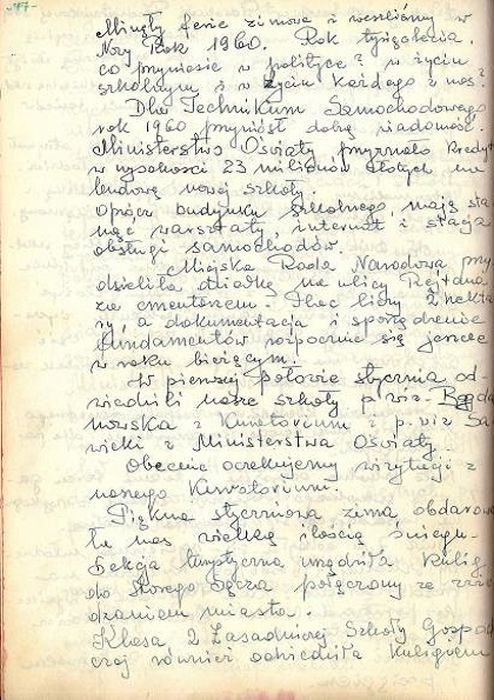 -47-
Minęły ferie zimowe i weszliśmy w
Nowy Rok 1960. Rok tysiąclecia.
co przyniesie w polityce? w życiu
szkolnym i w życiu każdego z nas?
Dla Technikum Samochodowego
rok 1960 przyniósł dobrą wiadomość.
Ministerstwo Oświaty przyznało kredyt
w wysokości 23 milionów złotych na
budowę nowej szkoły.
Oprócz budynku szkolnego, mają sta
nąć warsztaty, internat i stacja
obsługi samochodów.
Miejska Rada Narodowa przy
dzieliła działkę na ulicy Rejtana
za cmentarzem. Plac liczy 2 hekta
ry, a dokumentacja i sporządzenie
fundamentów rozpocznie się jeszcze
w roku bieżącym!
W pierwszej połowie stycznia od-
wiedzili nasze szkoły p. wiz. Bogda
nowska z Kuratorium i p. wiz Sa
wicki z Ministerstwa Oświaty.
Obecnie oczekujemy wizytacji z
naszego Kuratorium.
Piękna styczniowa zima obdarowa
ła nas wielką ilością śniegu.
Sekcja turystyczna urządziła kulig
do Starego Sącza połączony ze zwie
dzaniem miasta.
Klasa 2 Zasadniczej Szkoły Gospod
czej również odwiedziła kuligiem